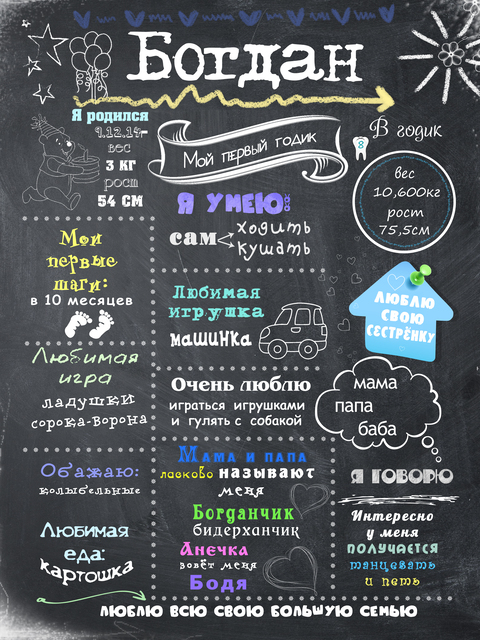 Богдан
Я родился
9.12.14-
вес
3 кг
рост
54 см
Мой первый годик
В годик
8
вес
10,600кг
рост
75,5см
Я УМЕЮ:
сам
ходить
кушать
Мои
первые
шаги:
в 10 месяцев
Любимая
игрушка
машинка
ЛЮБЛЮ
СВОЮ
СЕСТРЁНКУ
Любимая
игра
ладушки
сорока-ворона
Очень люблю
играться игрушками
и гулять с собакой
мама
папа
баба
Я ГОВОРЮ
Обажаю:
колыбельные
Мама и папа
ласково называют
меня
Богданчик
бидерханчик
Анечка
зовёт меня
Бодя
Интересно
у меня
получается
танцевать
и петь
Любимая
еда:
картошка
ЛЮБЛЮ ВСЮ СВОЮ БОЛЬШУЮ СЕМЬЮ